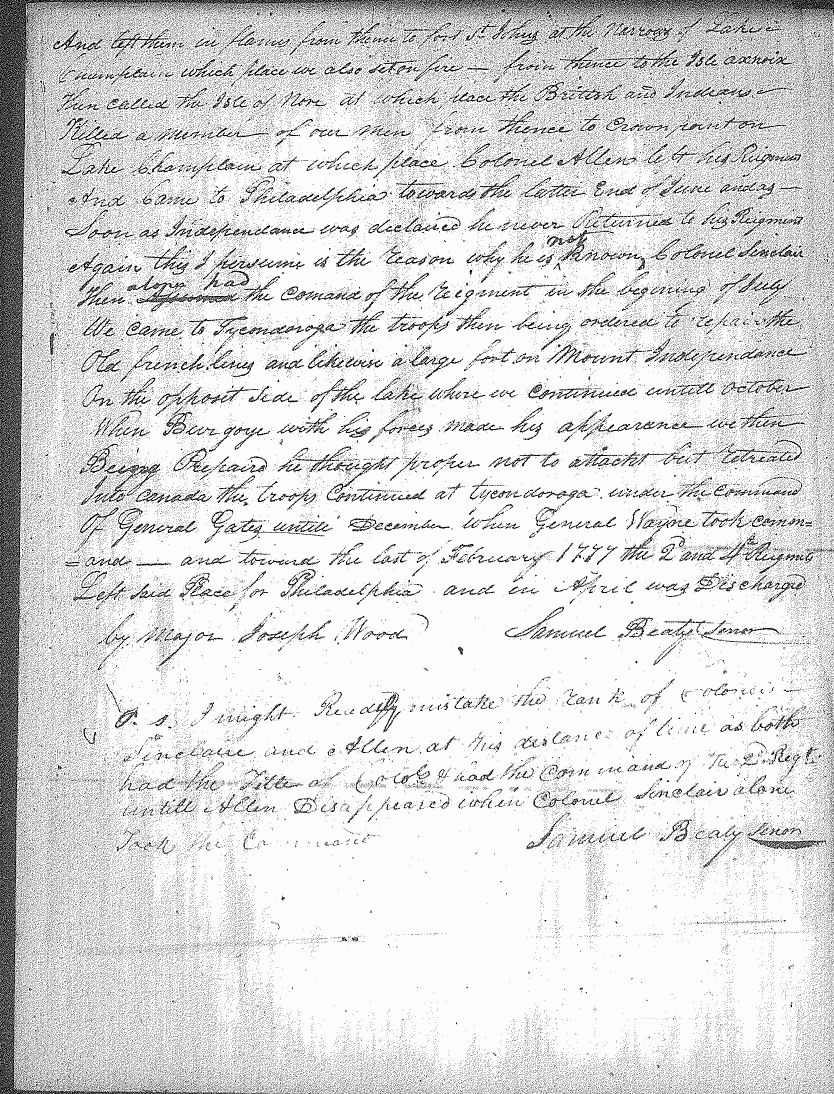 And left them in flames from thence to fort St Johns at the Narrows of Lake
Champlain which place we also set on fire — from thence to the Isle axnoix
then called the Isle of Nore at which place the British and Indians
Killed a member of our men from thence to Crownpoint on
Lake Champlain at which place Colonel Allen left his Regment
And Came to Philadelphia towards the latter End of June and as —
Soon as Independance was declaired he never Returned to his Regment
Again this I persume is the reason why he is not Known, Colonel Sinclair
Then alone had the comand of the regiment in the begining of July
We came to Tycondoroga the troops then being ordered to repair the
Old french lines and likewise a large fort on Mount Independance
On the opposit side of the lake where we continued untill October
When Burgoye with his forces made his appearance we then
Being Prepaired he thought proper not to attackt but retreated
Into canada the troops Continued at tycondoroga under the command
Of General Gates untill December when General Wayne took comm=
=and — and toward the last of February 1777 the 2d and 4th Regmts
Left said Place for Philadelphia and in April was Discharged
by Major Joseph Wood Samuel Bealy Senor
P. S. I might Readily mistake the rank of Colonels —
Sinclair and Allen at this distance of time as both
had the Title of Colols & had the Command of the 2d Regt
untill Allen Disappeared when Colonel Sinclair alone
Took the Command Samuel Bealy Senor